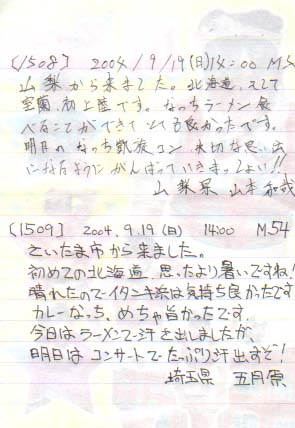 [1508] 2004/9/19(日)14:00 M54
山梨から来ました。北海道、そして
室蘭初上陸です。なっちラーメン食
べることができてとても良かったです。
明日のなっち凱旋コン、大切な思い出
になるようにがんばっていきまっしょい!!
山梨県 山本
[1509] 2004.9.19(日) 14:00 M54
さいたま市から来ました。
初めての北海道、思ったより暑いですね!
晴れたのでイタンキ浜は気持ち良かったです
カレーなっち、めちゃ旨かったです。
今日はラーメンで汗を出しましたが、
明日はコンサートでたっぷり汗出すぞ!
埼玉県 五月原